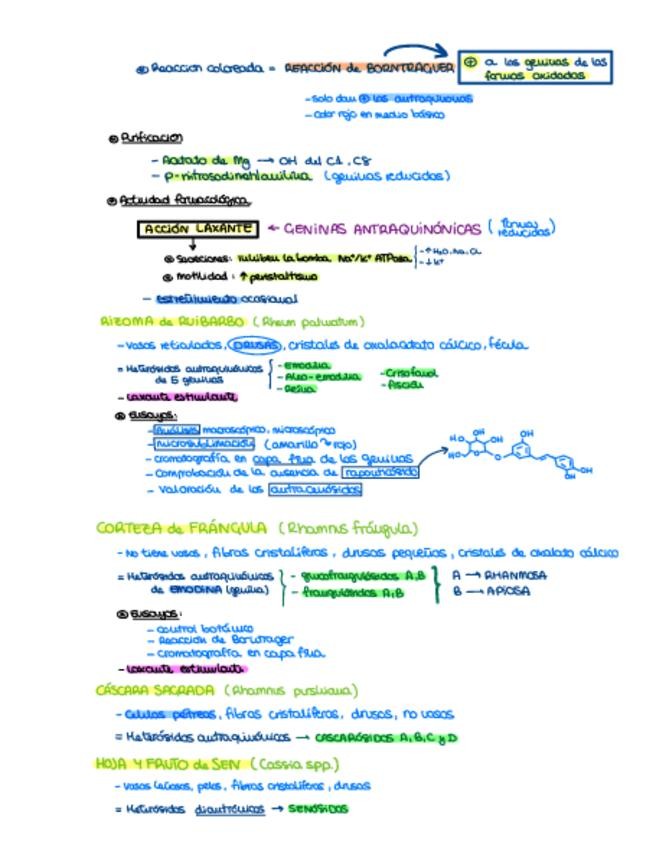 ⊛ Reaccion coloreada = REACCIÓN de BORNTRAGUER ⊕ a las geninas de las formas oxidadas
- solo dan ⊕ las antraquinonas
- color rojo en medio básico
⊛ Purificacion
- Acetato de Mg → OH del C1, C8
- p-nitrosodimetilanilina (geninas reducidas)
⊛ Actividad farmacológica
ACCIÓN LAXANTE ← GENINAS ANTRAQUINÓNICAS (formas reducidas)
⊛ Secreciones: inhiben la bomba Na⁺/K⁺ ATPasa
- ↑ H₂O, Na, Cl
- ↓ K⁺
⊛ Motilidad: ↑ peristaltismo
- estreñimiento ocasional
RIZOMA de RUIBARBO (Rheum palmatum)
- vasos reticulados, DRUSAS, cristales de oxalactato cálcico, fécula
= Heterósidos antraquinónicos de 5 geninas
- Emodina
- Aloe-emodina
- Reina
- Crisofanol
- Fisción
- Laxante estimulante
⊛ Ensayos:
- Análisis macroscópico, microscópico
- microsublimación (amarillo → rojo)
- cromatografía en capa fina de las geninas
- Comprobación de la ausencia de raponticósido
HO OH OH HO O O OH OH OH
- Valoración de los antracenósidos
CORTEZA de FRÁNGULA (Rhamnus frángula)
- No tiene vasos, fibras cristalíferas, drusas pequeñas, cristales de oxalato cálcico
= Heterósidos antraquinónicos de EMODINA (genina)
- glucofrangulósidos A,B
- frangulósidos A,B
A → RHAMNOSA
B → APIOSA
⊛ Ensayos:
- control botánico
- Reacción de Borntrager
- cromatografía en capa fina
- Laxante estimulante
CÁSCARA SAGRADA (Rhamnus purshiana)
- Células pétreas, fibras cristalíferas, drusas, no vasos
= Heterósidos antraquinónicos → CASCARÓSIDOS A, B, C y D
HOJA Y FRUTO de SEN (Cassia spp.)
- vasos leñosos, pelos, fibras cristalíferas, drusas
= Heterósidos diantrónicos → SENÓSIDOS